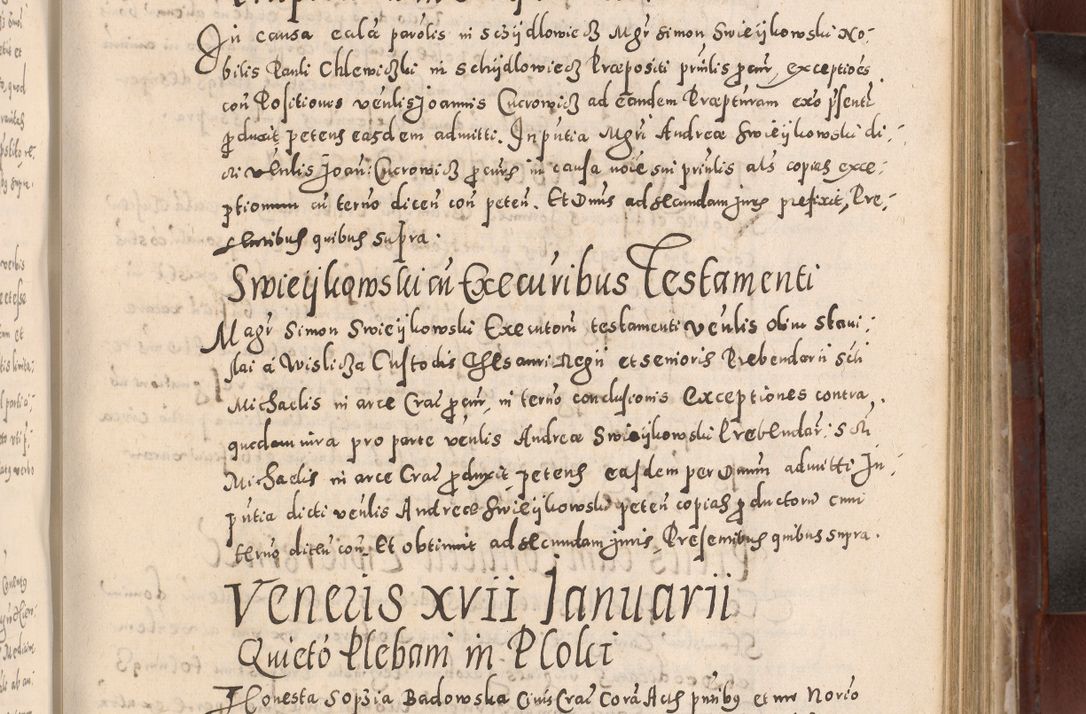 In causa ecclae parolis in Schÿdlowiecz Magr Simon Swieÿkowski No-
bilis Pauli Chlewiczki in Schÿdlowiecz Praepositi prnlis pcur, exceptioes
con Positiones venlis Joannis Cucrowicz ad eandem Praepturam exo psente
pduxit petens easdem admitti. In putia Magri Andreae Swieÿkowski di-
cti venlis Joan: Cucrowicz pcuris in causa noie sui prnlis als copias exce-
ptionum cu terno dicen con peten. Et Dnus ad secundam juris prefixit, Pre-
sentibus quibus supra.
Swieÿkowski cu Executoribus Testamenti
Magr Simon Swieÿkowski Executoru testamenti venlis olim Stani-
slai a Wislicza Custodis Thesauri Regii et senioris Prebendarii Scti
Michaelis in arce Crac pcur, in terno conclusionis exceptiones contra
quedam iura pro parte venlis Andreae Swieÿkowski Prebendar: Scti
Michaelis in arce Crac pduxit petens easdem per Dnum admitti In
putia dicti venlis Andreae Swieÿkowski peten copias pductoru cum
terno dicen con. Et obtinuit ad secundam juris, Presentibus quibus supra.
Veneris xvii Januarii
Quieto Plebani in Plolci
Honesta Sophia Badowska Civis Crac Cora Actis pntibus et me Norio